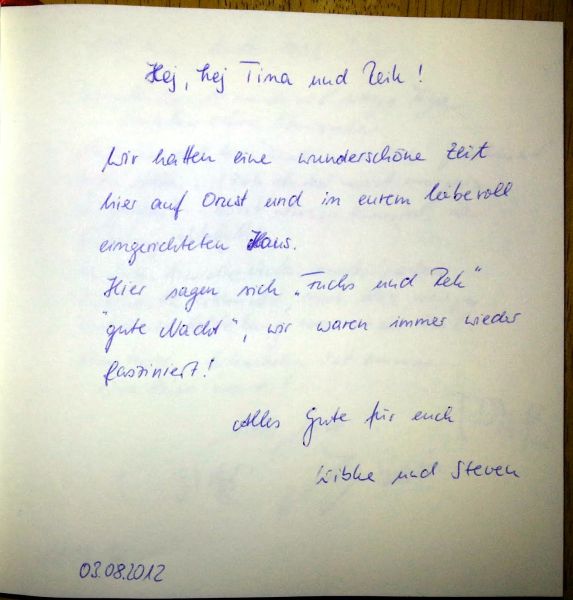 Hej, hej Tina und Reik!
Wir hatten eine wunderschöne Zeit
hier auf Orust und in eurem liebevoll
eingerichteten Haus.
Hier sagen sich "Fuchs und Reh"
"gute Nacht", wir waren immer wieder
fasziniert!
Alles Gute für euch
Wibke und Steven
03.08.2012